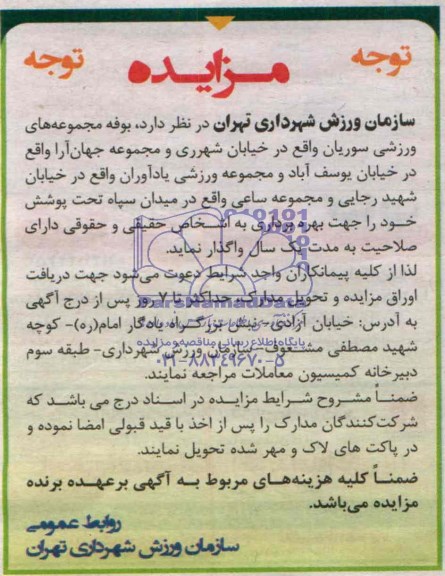 توجه
مزایده
توجه
سازمان ورزش شهرداری تهران در نظر دارد، بوفه مجموعه‌های
ورزشی سوریان واقع در خیابان شهرری و مجموعه جهان‌آرا واقع
در خیابان یوسف آباد و مجموعه ورزشی یادآوران واقع در خیابان
شهید رجایی و مجموعه ساعی واقع در میدان سپاه تحت پوشش
خـود را جهت بهره برداری به اشـخاص حقیقی و حقوقی دارای
صلاحیت به مدت یک سال واگذار نماید.
لذا از کلیه پیمانکاران واجد شرایط دعوت می‌شود جهت دریافت
اوراق مزایده و تحویل مدارک، حداکثر تا ۷ روز پس از درج آگهی
به آدرس: خیابان آزادی- نبش بزرگراه یادگار امام(ره)- کوچه
پایگاه اطلاع رسانی مناقصه و مزایده
شهید مصطفی مشعوف- سازمان ورزش شهرداری- طبقه سوم
۰۲۱-۸۸۳۴۹۶۷۰-۵
دبیرخانه کمیسیون معاملات مراجعه نمایند.
ضمنـاً مشـروح شرایط مزایـده در اسناد درج می باشد که
شرکت‌کنندگان مدارک را پس از اخذ با قید قبولی امضا نموده و
در پاکت های لاک و مهر شده تحویل نمایند.
ضمنـاً کلیه هزینه‌هـای مربوط بـه آگهی برعهـده برنده
مزایده می‌باشد.
روابط عمومی
سازمان ورزش شهرداری تهران